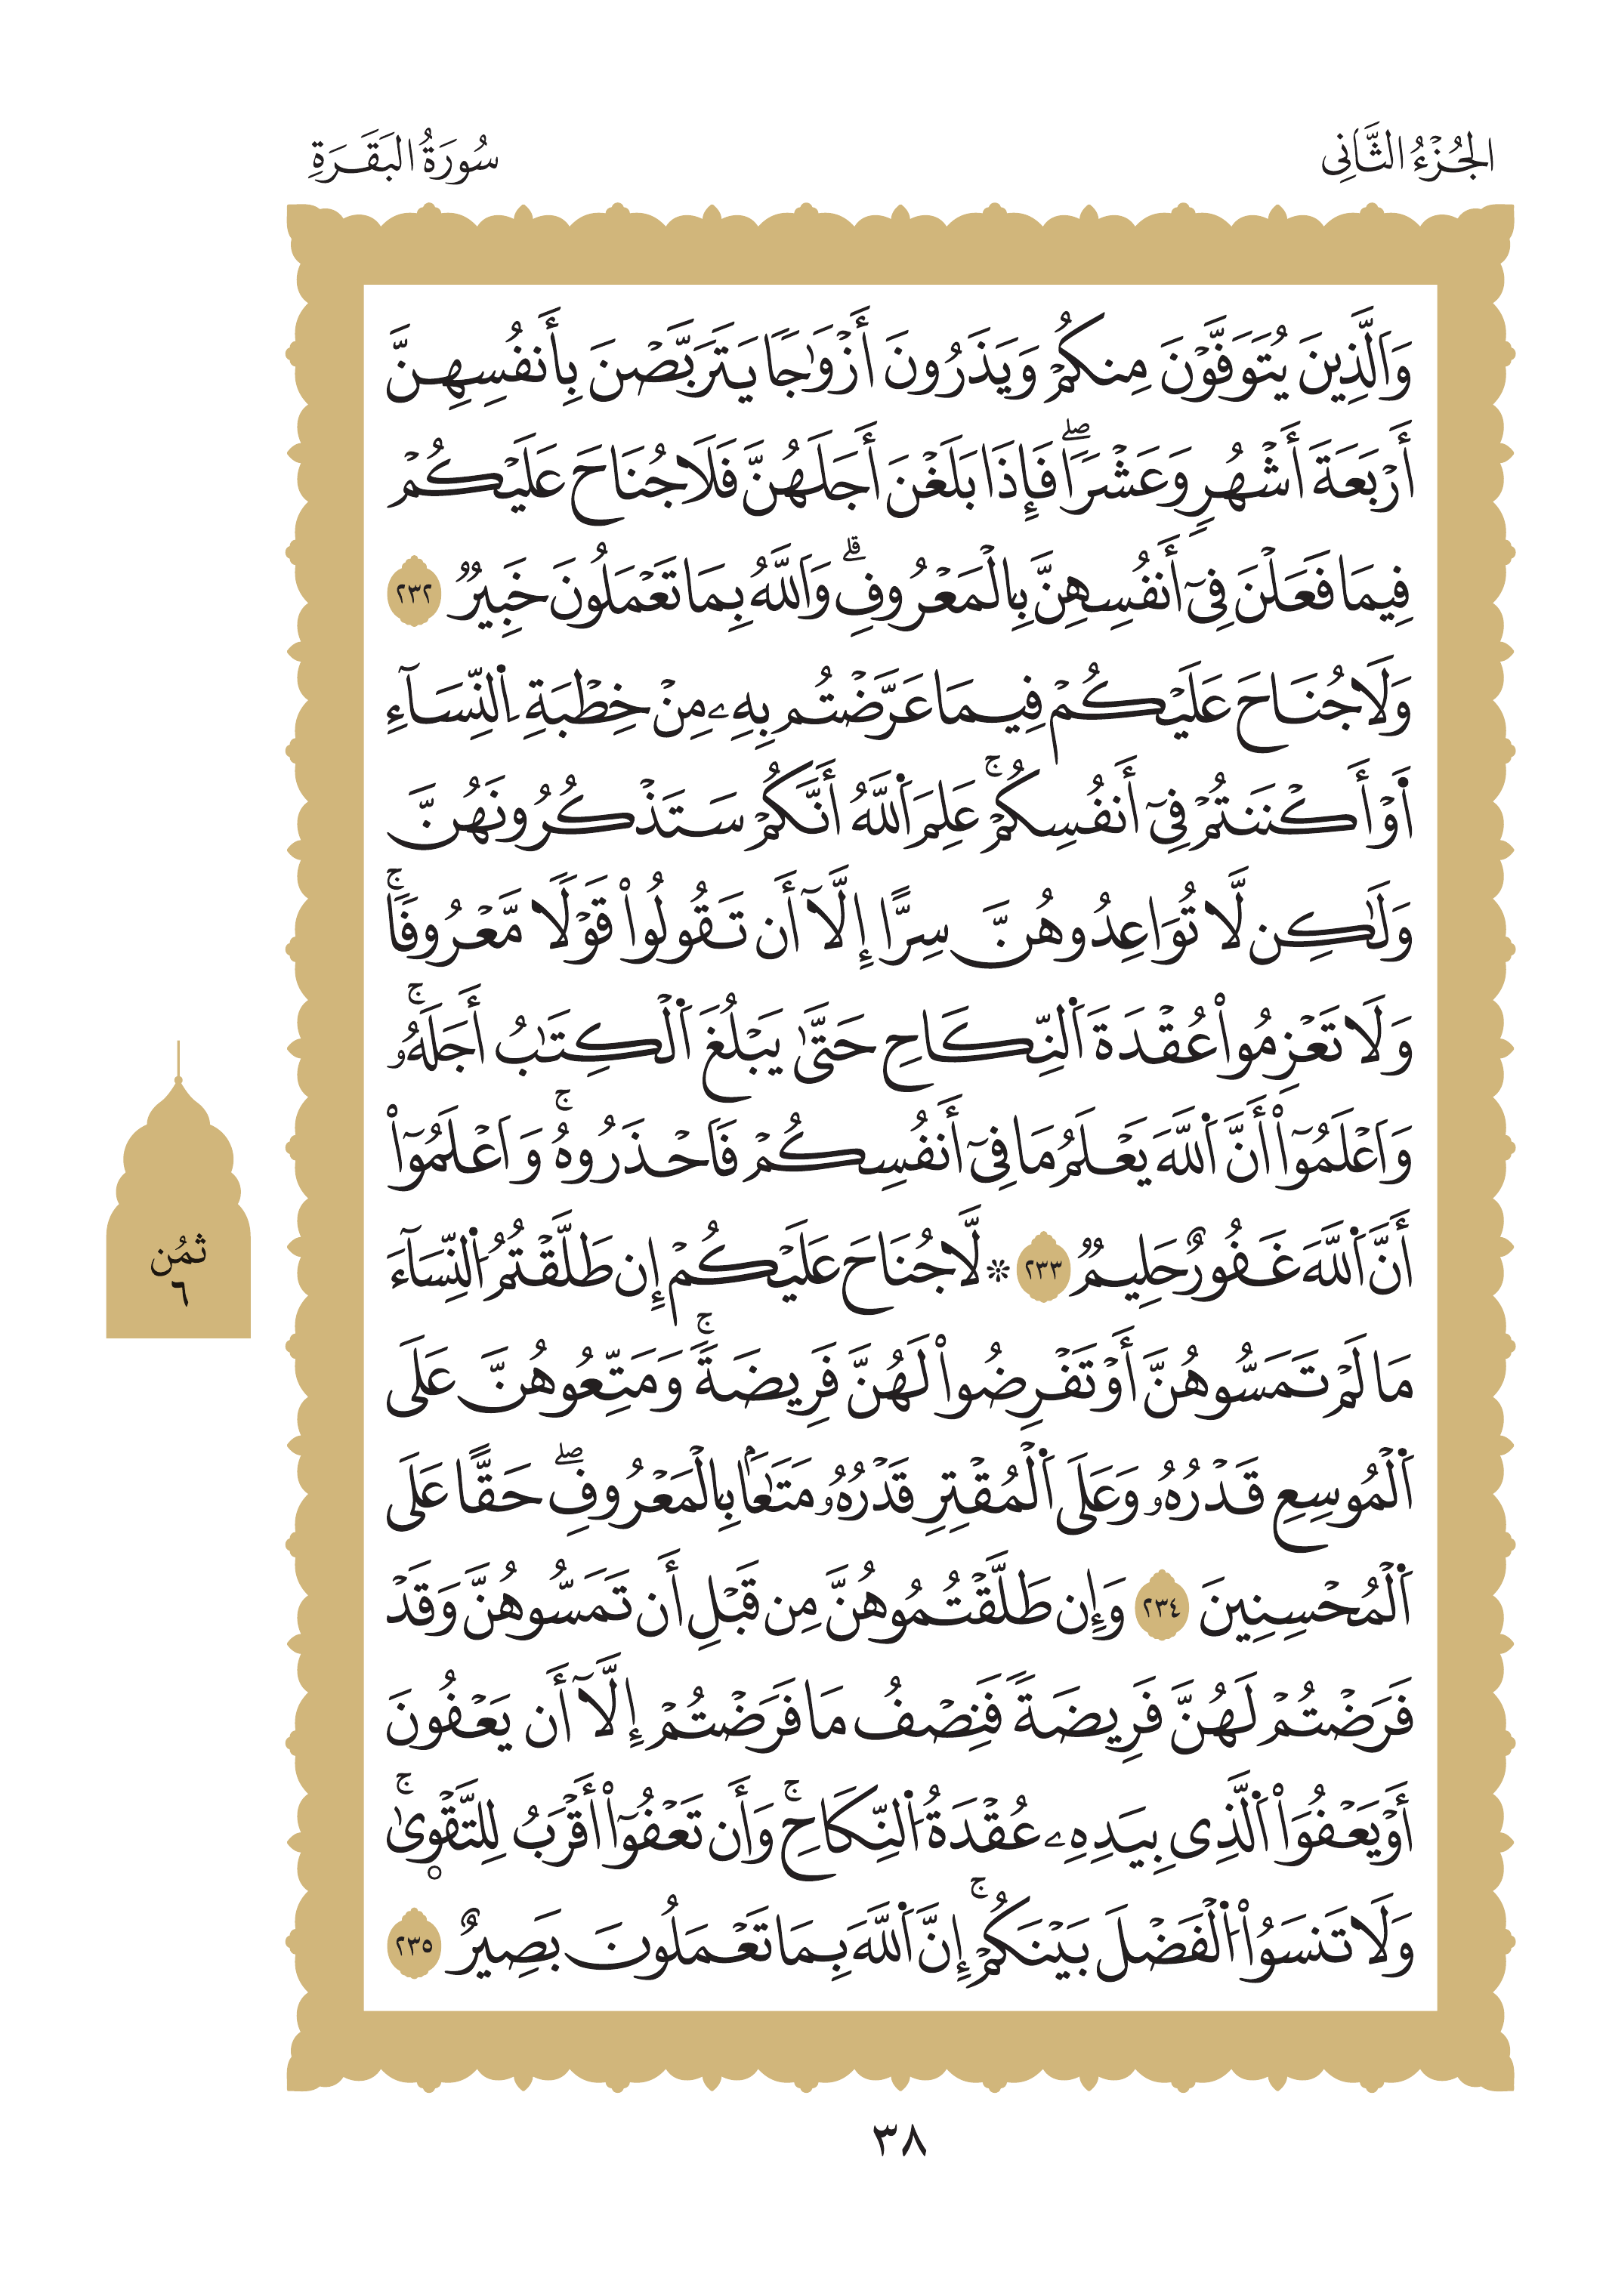 الجُزْءُ الثَّانِى
سُورَةُ البَقَرَةِ
وَاَلَّذِينَ يُتَوَفَّوْنَ مِنكُمْ وَيَذَرُونَ أَزْوَٰجًا يَتَرَبَّصْنَ بِأَنفُسِهِنَّ
أَرْبَعَةَ أَشْهُرٍ وَعَشْرًاۖ فَإِذَا بَلَغْنَ أَجَلَهُنَّ فَلَا جُنَاحَ عَلَيْكُمْ
فِيمَا فَعَلْنَ فِىٓ أَنفُسِهِنَّ بِالْمَعْرُوفِۗ وَاَللَّهُ بِمَا تَعْمَلُونَ خَبِيرٌ ٢٣٢
وَلَا جُنَاحَ عَلَيْكُمْ فِيمَا عَرَّضْتُم بِهِۦ مِنْ خِطْبَةِ اِ۬لنِّسَآءِ
اَ۬وْ أَكْنَنتُمْ فِىٓ أَنفُسِكُمْۚ عَلِمَ اَ۬للَّهُ أَنَّكُمْ سَتَذْكُرُونَهُنَّ
وَلَٰكِن لَّا تُوَاعِدُوهُنَّ سِرًّا إِلَّآ أَن تَقُولُواْ قَوْلًا مَّعْرُوفًاۚ
وَلَا تَعْزِمُواْ عُقْدَةَ اَ۬لنِّكَاحِ حَتَّىٰ يَبْلُغَ اَ۬لْكِتَٰبُ أَجَلَهُۥۚ
وَاَعْلَمُوٓاْ أَنَّ اَ۬للَّهَ يَعْلَمُ مَا فِىٓ أَنفُسِكُمْ فَاَحْذَرُوهُۚ وَاَعْلَمُوٓاْ
أَنَّ اَ۬للَّهَ غَفُورٌ حَلِيمٌ ٢٣٣ ۞ لَّا جُنَاحَ عَلَيْكُمْ إِن طَلَّقْتُمُ اُ۬لنِّسَآءَ
مَا لَمْ تَمَسُّوهُنَّ أَوْ تَفْرِضُواْ لَهُنَّ فَرِيضَةًۚ وَمَتِّعُوهُنَّ عَلَى
اَ۬لْمُوسِعِ قَدْرُهُۥ وَعَلَى اَ۬لْمُقْتِرِ قَدْرُهُۥ مَتَٰعَۢا بِالْمَعْرُوفِۖ حَقًّا عَلَى
اَ۬لْمُحْسِنِينَ ٢٣٤ وَإِن طَلَّقْتُمُوهُنَّ مِن قَبْلِ أَن تَمَسُّوهُنَّ وَقَدْ
فَرَضْتُمْ لَهُنَّ فَرِيضَةً فَنِصْفُ مَا فَرَضْتُمْ إِلَّآ أَن يَعْفُونَ
أَوْ يَعْفُوَاْ اَ۬لَّذِى بِيَدِهِۦ عُقْدَةُ اُ۬لنِّكَاحِۚ وَأَن تَعْفُوٓاْ أَقْرَبُ لِلتَّقْو۪ىٰۚ
وَلَا تَنسَوُاْ اُ۬لْفَضْلَ بَيْنَكُمْۚ إِنَّ اَ۬للَّهَ بِمَا تَعْمَلُونَ بَصِيرٌ ٢٣٥
ثمُن
٦
٣٨